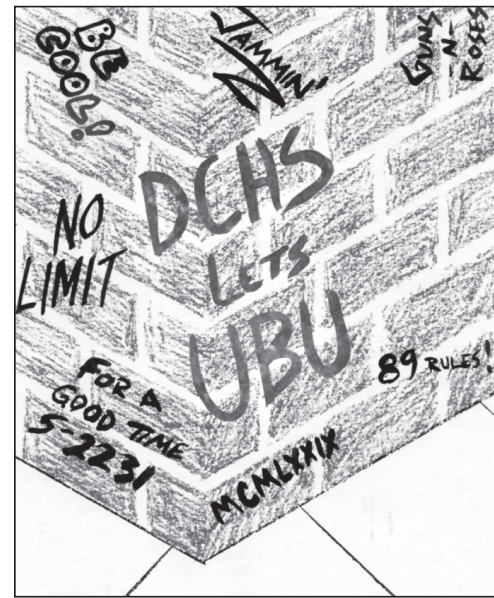 BE
COOL!
JAMMIN'
GUNS
-N-
ROSES
DCHS
LETS
UBU
NO
LIMIT
89 RULES!
FOR A
GOOD TIME
5-2231
MCMLXXIX